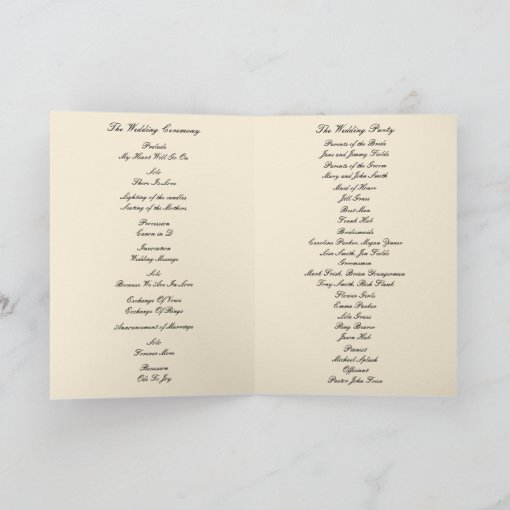 The Wedding Ceremony
Prelude
My Heart Will Go On
Solo
There Is Love
Lighting of the candles
Seating of the Mothers
Procession
Canon in D
Invocation
Wedding Message
Solo
Because We Are In Love
Exchange Of Vows
Exchange Of Rings
Announcement of Marriage
Solo
Forever More
Recession
Ode To Joy
The Wedding Party
Parents of the Bride
Jane and Jimmy Fields
Parents of the Groom
Mary and John Smith
Maid of Honor
Jill Grass
Best Man
Frank Hub
Bridesmaids
Caroline Parker, Megan
Lisa Smith, Jen Fields
Groomsmen
Mark Frisk, Brian Youngerman
Tony Smith, Rick Flank
Flower Girls
Emma Parker
Lila Grass
Ring Bearer
Jason Hub
Pianist
Michael Splash
Officiant
Pastor John